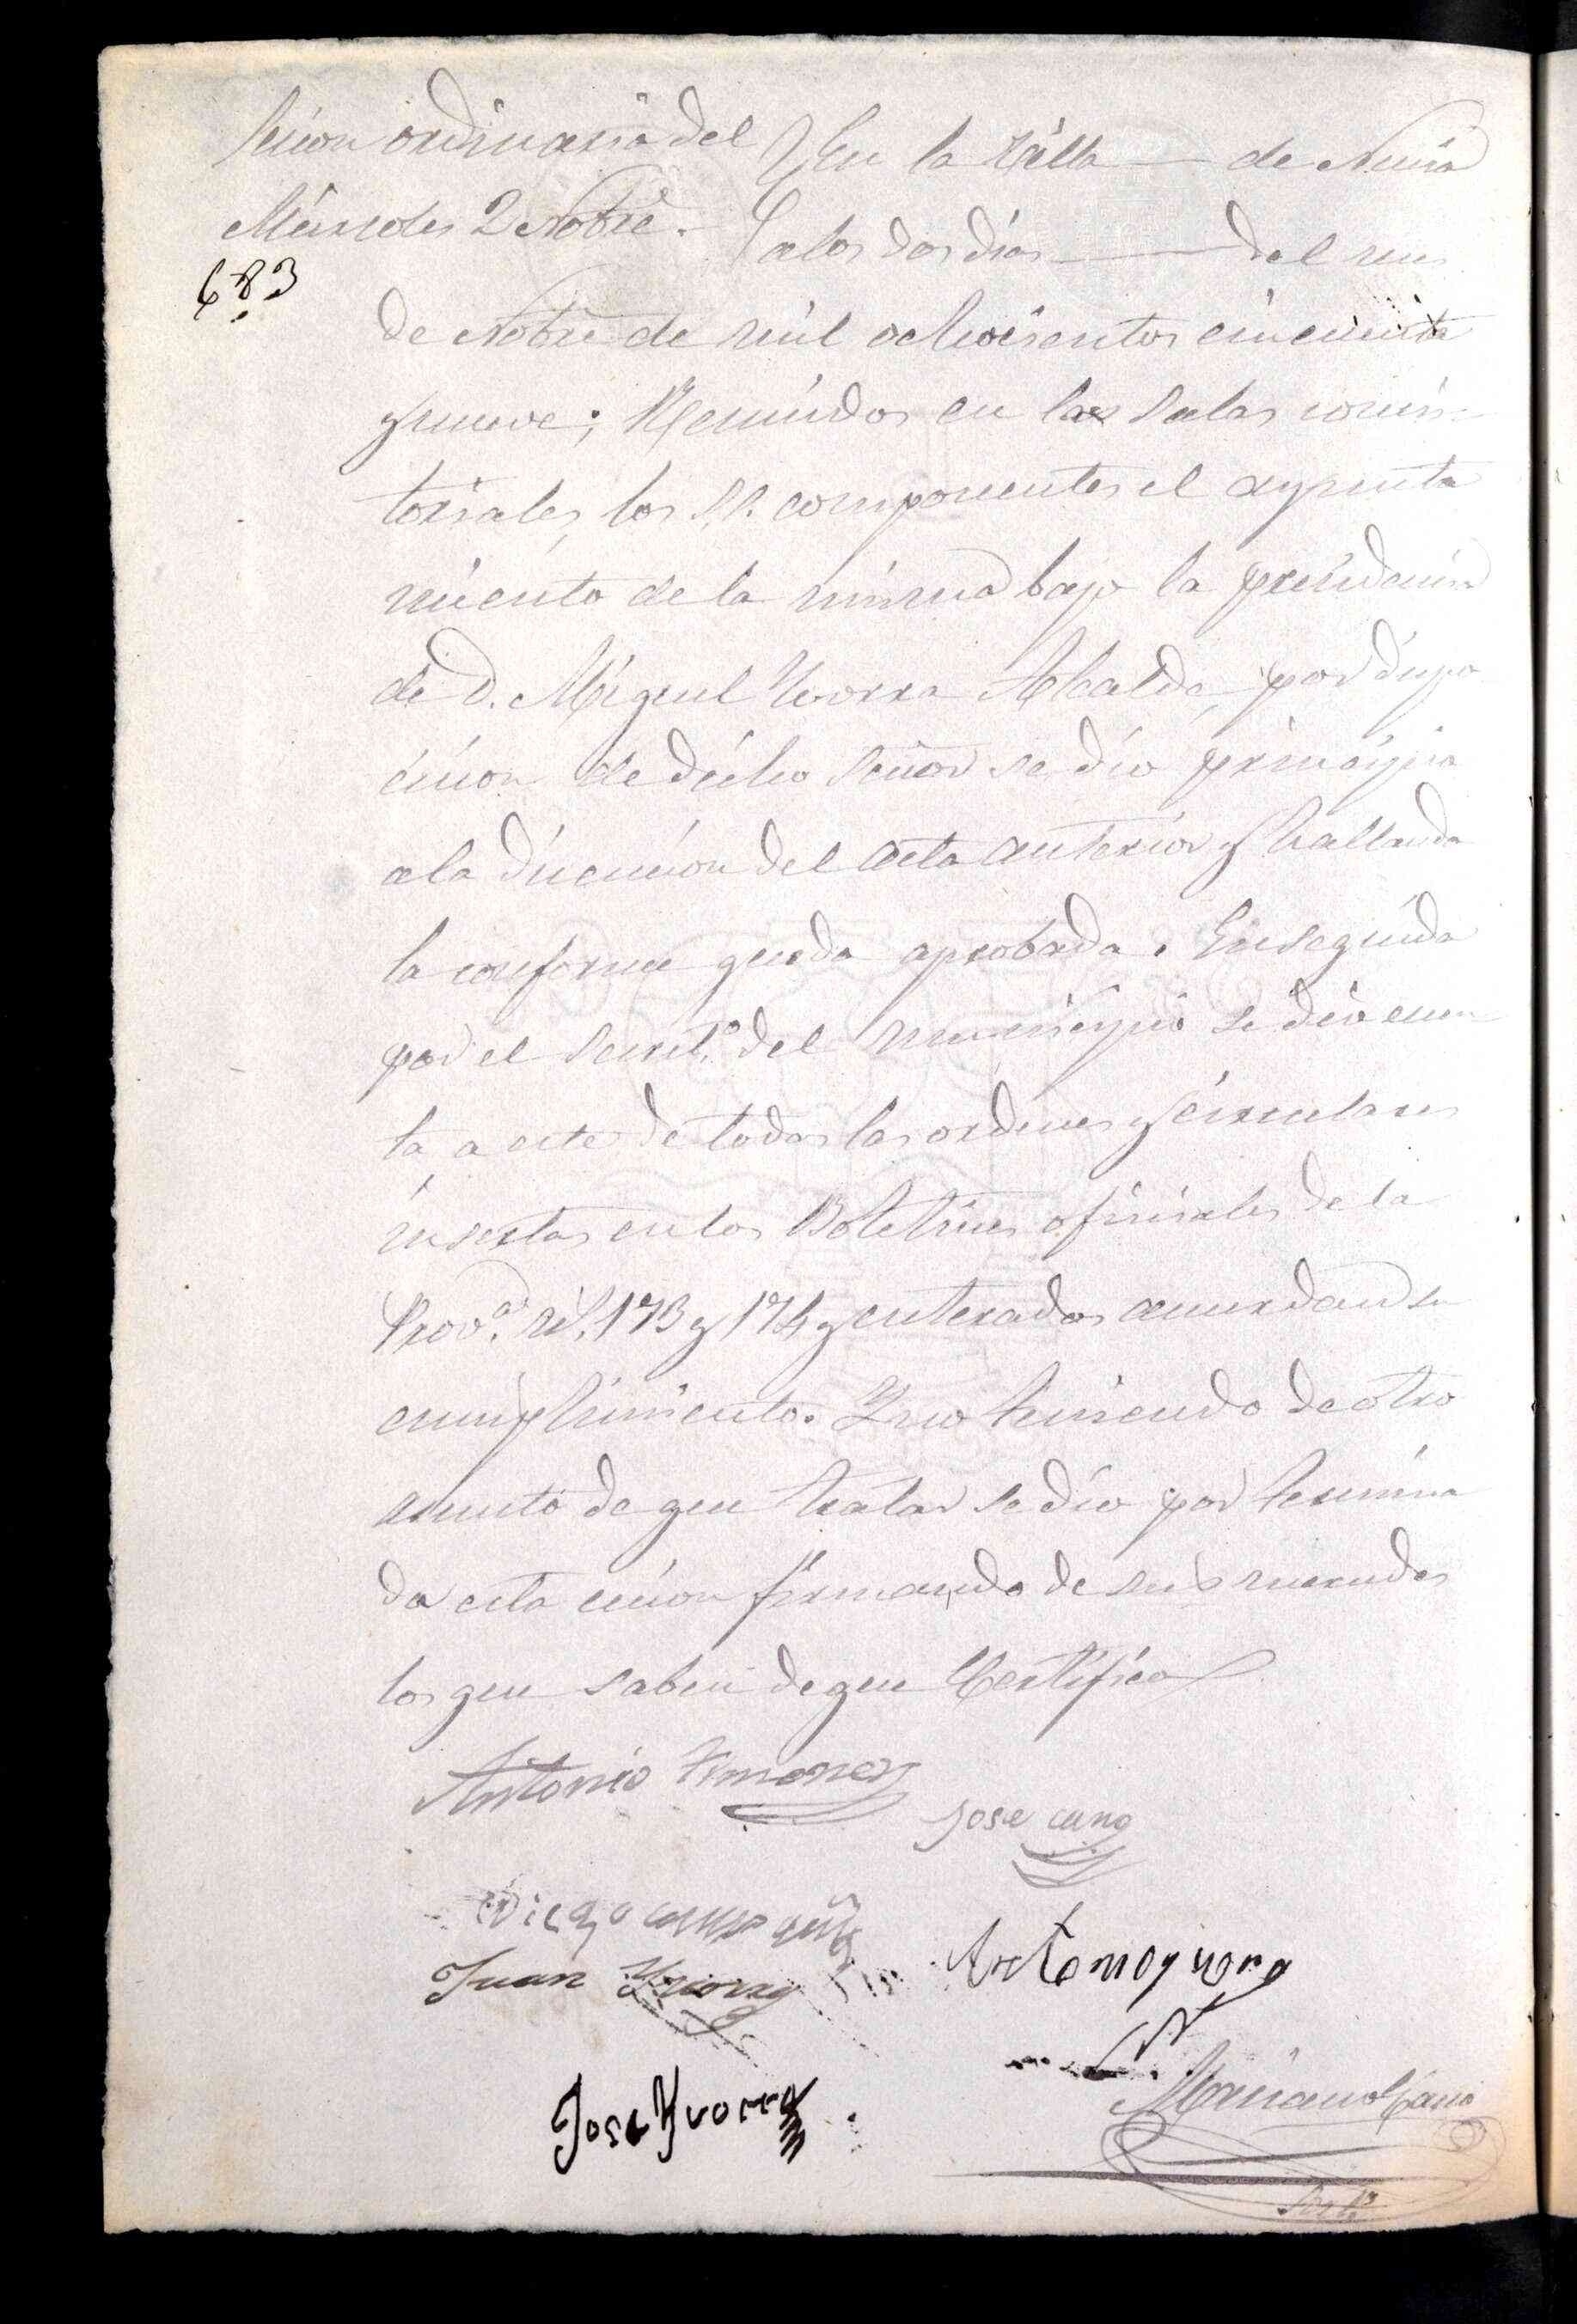 Secion ordinaria del
Miercoles 2 Nobre.
683
En la Villa de Nucia
a los dos dias del mes
de Nobre de mil ochocientos cincuenta
y nueve; Reunidos en las Salas consis-
toriales, los S.S. componentes el ayunta
miento de la misma bajo la precidencia
de D. Miguel Yvorra Alcalde, por dispo
cicion de dicho Señor se dio principio
a la dicucion del acta anterior y hallando
la conforme queda aprobada. Enseguida
por el Secret.º del municipio se dio cuen
ta, a este de todas las ordenes y circulares
insertas en los Boletines oficiales de la
Prov.ª n.s 173 y 174 y enterados acuerdan su
cumplimiento. Y no teniendo de otro
asunto de que tratar se dio por termina
da esta cecion firmando de sus mercedes
los que saben de que Certifico
Antonio Ximenez
Jose cano
Diego
Juan Yvorra
Antonio
Jose Yvorra
Mariano Cano